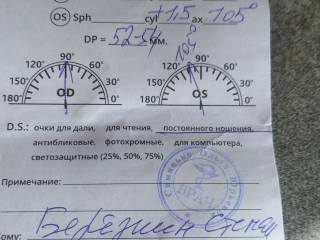 OS Sph cyl +1,5 ax 105°
DP = 52-54 мм.
120° 90° 60° 30° 0° 150° 180°
OD
120° 105° 60° 30° 0° 150° 180°
OS
D.S.: очки для дали, для чтения, постоянного ношения,
антибликовые, фотохромные, для компьютера,
светозащитные (25%, 50%, 75%)
Примечание:
ВРАЧ
Кому: Березкин